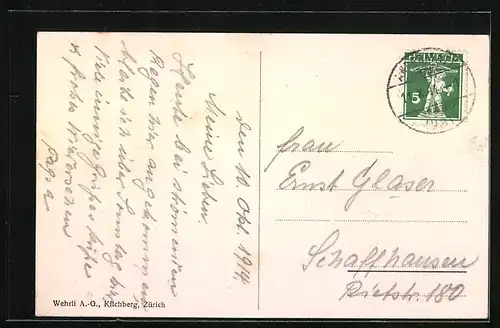 den 10. Okt. 1914
Meine Lieben.
Heute bei strömenden
Regen hier angekommen
bleibe ich über Sonntag hier
Viele innige Grüsse Küsse
& frohes Wiedersehen
Papa
Frau
Ernst Glaser
Schaffhausen
Rietstr. 180
HELVETIA
5
Wehrli A.-G., Kilchberg, Zürich